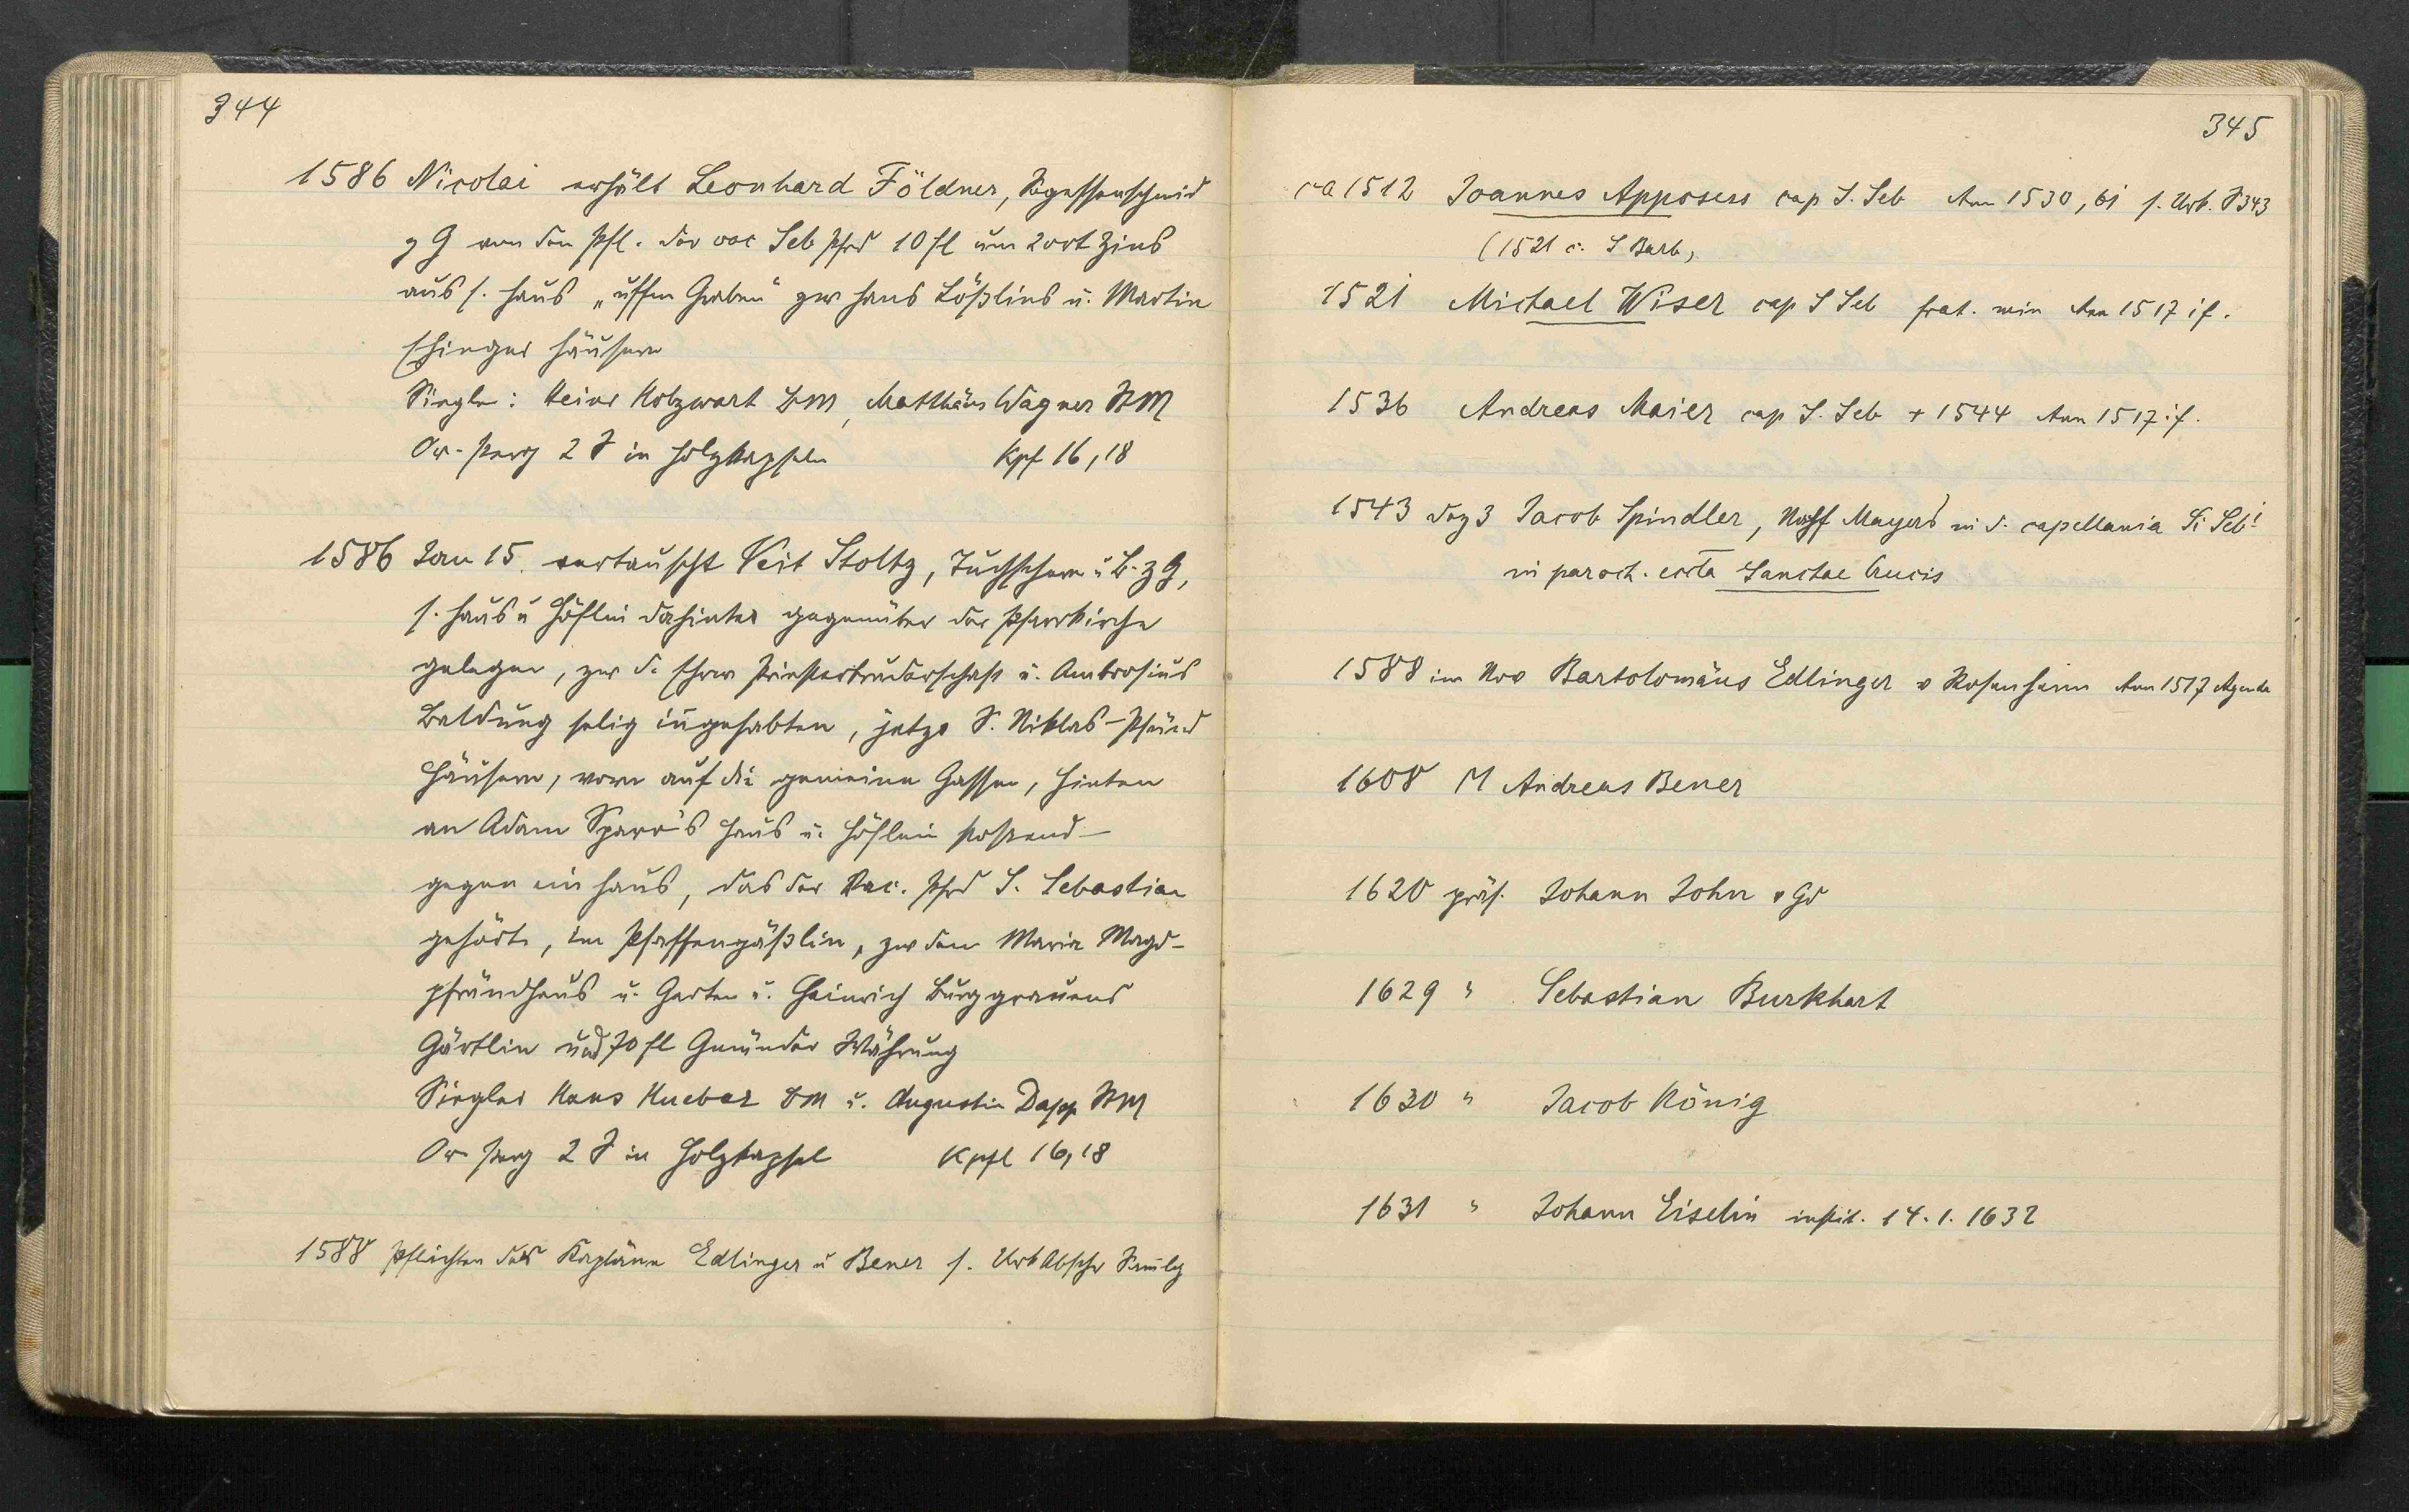 344
1586 Nicolai erhält Leonhard Földner, Segessenschmid
z G von den Pfl. der vac Seb Pfrd 10 fl um 2 ort Zins
aus s. Haus „uffm Graben" zw Hans Lößlins u. Martin
Ehinger Häusern
Siegler: Heinr Holzwart BM, Matthäus Wagner StM
Or-Perg 2 S in Holzkapseln Kpf 16,18
1586 Jan 15. vertauscht Veit Stoltz, Tuchscherer u B. z G,
s. Haus u Höflin dahinter gegenüber der Pfarrkirche
gelegen, zw d. Ehrw Priesterbruderschaft u. Ambrosius
Baldung selig ingehabten, jetzo S. Niklas-Pfründ
Häusern, vorn auf die gemeine Gassen, hinten
an Adam Sparr's Haus u. Höflein stossend –
gegen ein Haus, das der Vac. Pfrd S. Sebastian
gehörte, im Pfaffengäßlin, zw dem Maria Magd-
pfründhaus u. Garten u. Heinrich Burggrauens
Gärtlin und 70 fl Gmünder Währung
Siegler Hans Hueber BM u. Augustin Dapp StM
Or Perg 2 S in Holzkapsel Kpfl 16,18
1588 Pflichten der Kapläne Edlinger u Bener s. Urb Abschr
345
ca 1512 Joannes Apposess cap S. Seb Ann 1530, 61 s. Urk. S 343
(1521 c. S Barb,
1521 Michael Wiser cap S Seb frat. min Ann 1517 if.
1536 Andreas Maier cap S. Seb + 1544 Ann 1517 if.
1543 Dez 3 Jacob Spindler, Nachf Mayers in d. capellania Si Sebi
in paroch. eccla Sanctae Crucis
1588 im Nov Bartolomäus Edlinger v Rosenheim Ann 1517 Agenda
1608 M Andreas Bener
1620 präs. Johann John v Gd
1629 " Sebastian Burkhart
1630 " Jacob König
1631 " Johann Eiselin instit. 14.1.1632